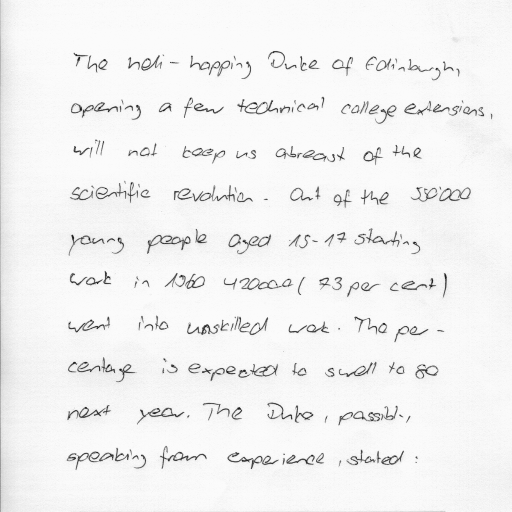 The heli-hopping Duke of Edinburgh,
opening a few technical college extensions,
will not keep us abreast of the
scientific revolution. Out of the 550'000
young people aged 15-17 starting
work in 1960 420000 (73 per cent)
went into unskilled work. The per-
centage is expected to swell to 80
next year. The Duke, possibly,
speaking from experience, stated: